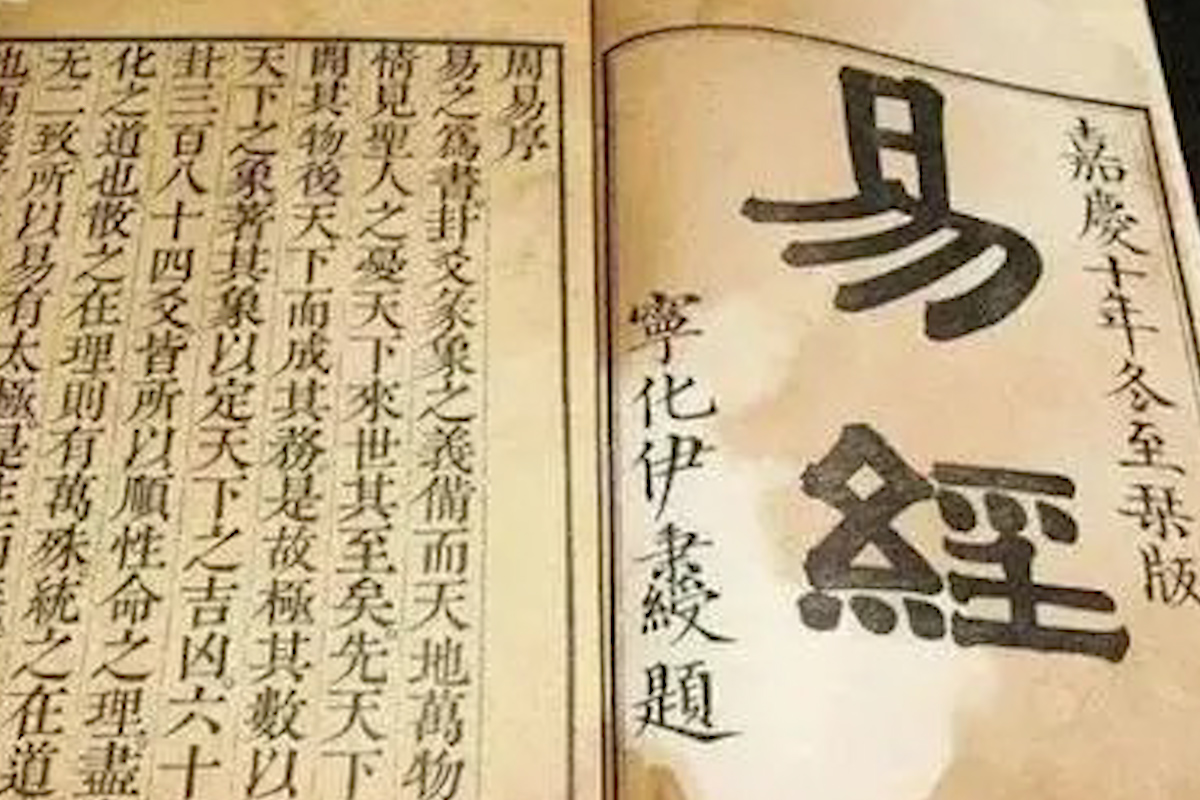 嘉慶十年冬至栞版
易經
寧化伊秉綬題
周易序
易之爲書卦爻彖象之義備而天地萬物
情見聖人之憂天下來世其至矣先天下
開其物後天下而成其務是故極其數以
天下之象著其象以定天下之吉凶六十
卦三百八十四爻皆所以順性命之理盡
化之道也散之在理則有萬殊統之在道
无二致所以易有太極是生